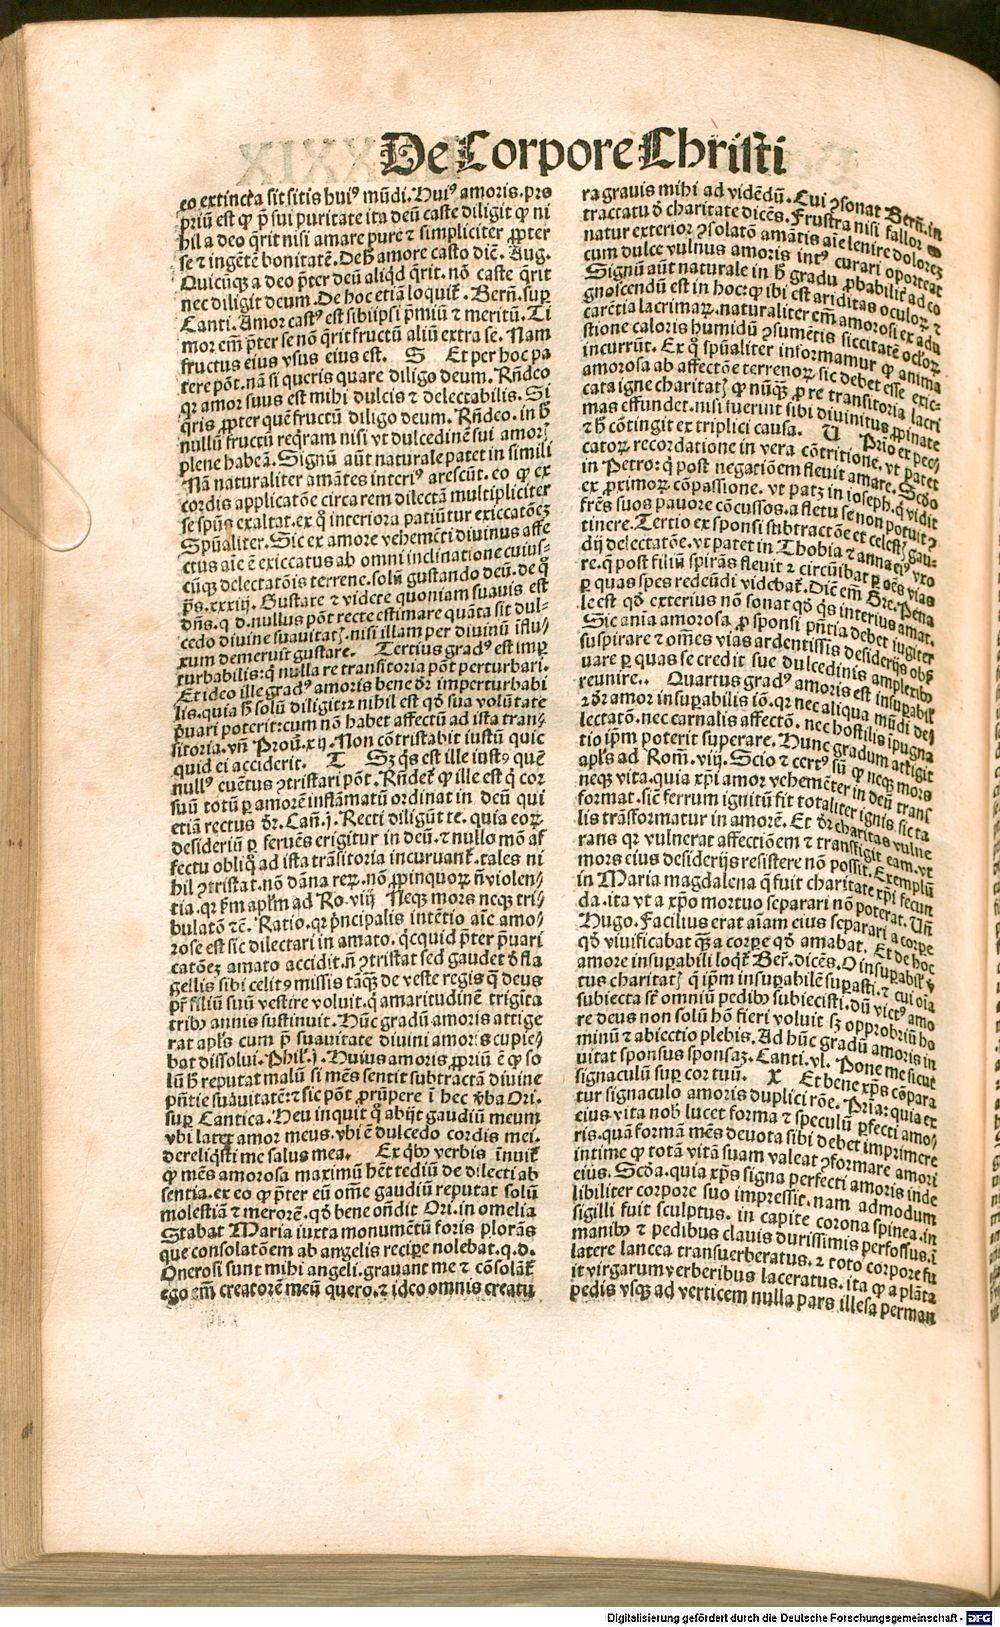 De Corpore Christi
eo extincta sit sitis huiꝰ mūdi. Huiꝰ amoris. pro
priū est ꝙ p̄ sui puritate ita deū caste diligit ꝙ ni
hil a deo q̄rit nisi amare pure ⁊ simpliciter ꝓpter
se ⁊ ingētē bonitatē. De h̄ amore casto diē. Aug.
Quicūqꝫ a deo p̄ter deū aliqd q̄rit. nō caste q̄rit
nec diligit deum. De hoc etiā loquit᷑. Bern̄. suꝑ
Canti. Amor castꝰ est sibiipsi p̄miū ⁊ meritū. Ti
mor em̄ p̄ter se nō q̄rit fructū aliū extra se. Nam
fructus eius vsus eius est. S Et per hoc pa
tere pōt. nā si queris quare diligo deum. Rn̄deo
qꝛ amor suus est mihi dulcis ⁊ delectabilis. Si
q̄ris ꝓpter quē fructū diligo deum. Rn̄deo. in h̄
nullū fructū req̄ram nisi vt dulcedinē sui amorꝭ
plene habeā. Signū aūt naturale patet in simili
Nā naturaliter amātes interiꝰ arescūt. eo ꝙ ex
cordis applicatōe circa rem dilectā multipliciter
se spūs exaltat. ex q̄ interiora patiūtur exiccatōeꝫ
Spūaliter. Sic ex amore vehemēti diuinus affe
ctus aīe ē exiccatus ab omni inclinatione cuius-
cūqꝫ delectatōis terrene. solū gustando deū. de q̄
ps. xxxiij. Gustate ⁊ videte quoniam suauis est
dn̄s. q d. nullus pōt recte estimare quāta sit dul-
cedo diuine suauitatꝭ. nisi illam per diuinū īflu-
xum demeruit gustare. Tertius gradꝰ est impꝛ
turbabilis: q̄ nulla re transitoria pōt perturbari.
Et ideo ille gradꝰ amoris bene dr̄ imperturbabi
lis. quia h̄ solū diligit: ⁊ nihil est qd̄ sua volūtate
p̄uari poterit: cum nō habet affectū ad ista tran-
sitoria. vn̄ Prou̇. xij. Non cōtristabit iustū quic
quid ei acciderit. T Sꝫ q̄s est ille iustꝰ quē
nullꝰ euētus ꝯtristari pōt. Rn̄det᷑ ꝙ ille est q̄ cor
suū totū ꝑ amorē inflāmatū ordinat in deū qui
etiā rectus dr̄. Can̄. j. Recti diligūt te. quia eoꝝ
desideriū ꝑ feruēs erigitur in deū. ⁊ nullo mō af
fectu obliq̄ ad ista trāsitoria incuruant᷑. tales ni
hil ꝯtristat. nō dāna reꝝ. nō ꝓpinquoꝝ n̄ violen-
tia. qꝛ fm apl̄m ad Ro. viij Neqꝫ mors neqꝫ tri-
bulatō ⁊c̄. Ratio. qꝛ p̄ncipalis intētio aīe amo-
rose est sic dilectari in amato. q̄cquid p̄ter p̄uari
catōeꝫ amato accidit. n̄ ꝯtristat sed gaudet d̄ fla
gellis sibi celitꝰ missis tāqꝫ de veste regis q̄ deus
pr̄ filiū suū vestire voluit. q̄ amaritudinē trigīta
tribꝰ annis sustinuit. Hūc gradū amoris attige
rat apl̄s cum p̄ suauitate diuini amoris cupie-
bat dissolui. Phil̄. j. Huius amoris ꝓpriū ē ꝙ so
lū h̄ reputat malū si mēs sentit subtractā diuine
pn̄tie suauitatē: ⁊ sic pōt ꝓrūpere ī hec v̄ba Ori.
suꝑ Cantica. Heu inquit q̄ abijt gaudiū meum
vbi latet amor meus. vbi ē dulcedo cordis mei.
dereliq̄sti me salus mea. Ex q̄bꝰ verbis īnuit᷑
ꝙ mēs amorosa maximū hēt tediū de dilecti ab
sentia. ex eo ꝙ p̄ter eū om̄e gaudiū reputat solū
molestiā ⁊ merorē. qd̄ bene on̄dit Ori. in omelia
Stabat Maria iuxta monumētū foris plorās
que consolatōem ab angelis recipe nolebat. q. d.
Onerosi sunt mihi angeli. grauant me ⁊ cōsolāt᷑
ego em̄ creatorē meū quero. ⁊ ideo omnis creatu
ra grauis mihi ad vidēdū. Cui ꝯsonat Bern̄. in
tractatu d̄ charitate dicēs. Frustra nisi fallor
natur exterior ꝯsolatō amātis aīe lenire dolorez
cum dulce vulnus amoris intꝰ curari oporteat
Signū aūt naturale in h̄ gradu ꝓbabilit᷑ ad co
gnoscendū est in hoc: ꝙ ibi est ariditas oculoꝝ ⁊
carētia lacrimaꝝ. naturaliter em̄ amorosi ex adu
stione caloris humidū ꝯsumētis siccitatē oclōꝝ
incurrūt. Ex q̄ spūaliter informamur ꝙ anima
amorosa ab affectōe terrenoꝝ sic debet esse exic-
cata igne charitatꝭ ꝙ nūqꝫ ꝓ re transitoria lacri
mas effundet. nisi fuerint sibi diuinitus ꝓpinate
⁊ h̄ cōtingit ex triplici causa. U Prīo ex pec-
catoꝝ recordatione in vera cōtritione. vt patet
in Petro: q̄ post negatiōem fleuit amare. Scd̄o
ex ꝓximoꝝ cōpassione. vt patꝫ in ioseph. q̄ vidit
fr̄es suos pauore cōcussos. a fletu se non potuit ꝯ
tinere. Tertio ex sponsi subtractōe et celestꝭ gau-
dij delectatōe. vt patet in Thobia ⁊ anna eiꝰ vxo
re. q̄ post filiū spirās fleuit ⁊ circūibat ꝑ oēs vias
ꝑ quas spes redeūdi videbat᷑. Diē em̄ Gre. Pena
le est qd̄ exterius nō sonat qd̄ q̄s interius amat.
Sic ania amorosa ꝓ sponsi pn̄tia debet iugiter
suspirare ⁊ om̄es vias ardentissis desiderijs obs̄
uare ꝑ quas se credit sue dulcedinis amplexibꝰ
reunire.. Quartus gradꝰ amoris est insuꝑabil̄
⁊ dr̄ amor insuꝑabilis iō. qꝛ nec aliqua mūdi de-
lectatō. nec carnalis affectō. nec hostilis īpugna
tio ip̄m poterit superare. Hunc gradum attigit
apl̄s ad Rom̄. viij. Scio ⁊ certꝰ sū ꝙ neqꝫ mors
neqꝫ vita. quia xp̄i amor vehemēter in deū trans
format. sic̄ ferrum ignitū fit totaliter ignis sic ta
lis trāsformatur in amorē. Et dr̄ charitas vulne
rans qꝛ vulnerat affectiōem ⁊ transfigit eam. vt
mors eius desiderijs resistere nō possit. Exemplū
in Maria magdalena q̄ fuit charitate xp̄i fecun
da. ita vt a xp̄o mortuo separari nō poterat. Un̄
Hugo. Facilius erat aīam eius separari a corpe
qd̄ viuificabat qꝫ a corpe qd̄ amabat. Et de hoc
amore insuꝑabili loqt᷑ Ber̄. dicēs. O insuꝑabil̄ v̄
tus charitatꝭ q̄ ip̄m insuꝑabilē suꝑasti. ⁊ cui oīa
subiecta sr̄ omniū pedibꝰ subiecisti. dū victꝰ amo
re deus non solū hō fieri voluit sꝫ opprobriū ho
minū ⁊ abiectio plebis. Ad hūc gradū amoris in
uitat sponsus sponsaꝫ. Canti. vl. Pone me sicut
signaculū suꝑ cor tuū. X Et bene xp̄s cōpara
tur signaculo amoris duplici rōe. Pria: quia ex
eius vita nob̄ lucet forma ⁊ speculū ꝑfecti amo-
ris. quā formā mēs deuota sibi debet imprimere
intime ꝙ totā vitā suam valeat ꝯformare amori
eius. Scd̄a. quia xp̄s signa perfecti amoris inde
libiliter corpore suo impressit. nam admodum
sigilli fuit sculptus. in capite corona spinea. in
manibꝰ ⁊ pedibus clauis durissimis perfossus. ī
latere lancea transuerberatus. ⁊ toto corpore fu
it virgarum verberibus laceratus. ita ꝙ a plāta
pedis vsqꝫ ad verticem nulla pars illesa perman
Digitalisierung gefördert durch die Deutsche Forschungsgemeinschaft - DFG